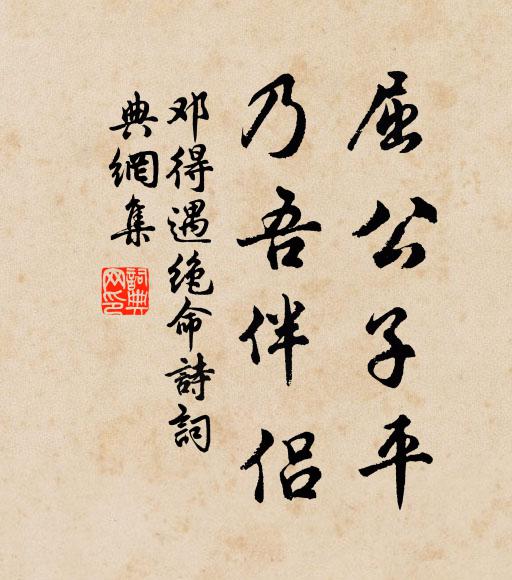 屈公子平
乃吾伴侣
邓得遇绝命詩詞
典網集
詞典
网印